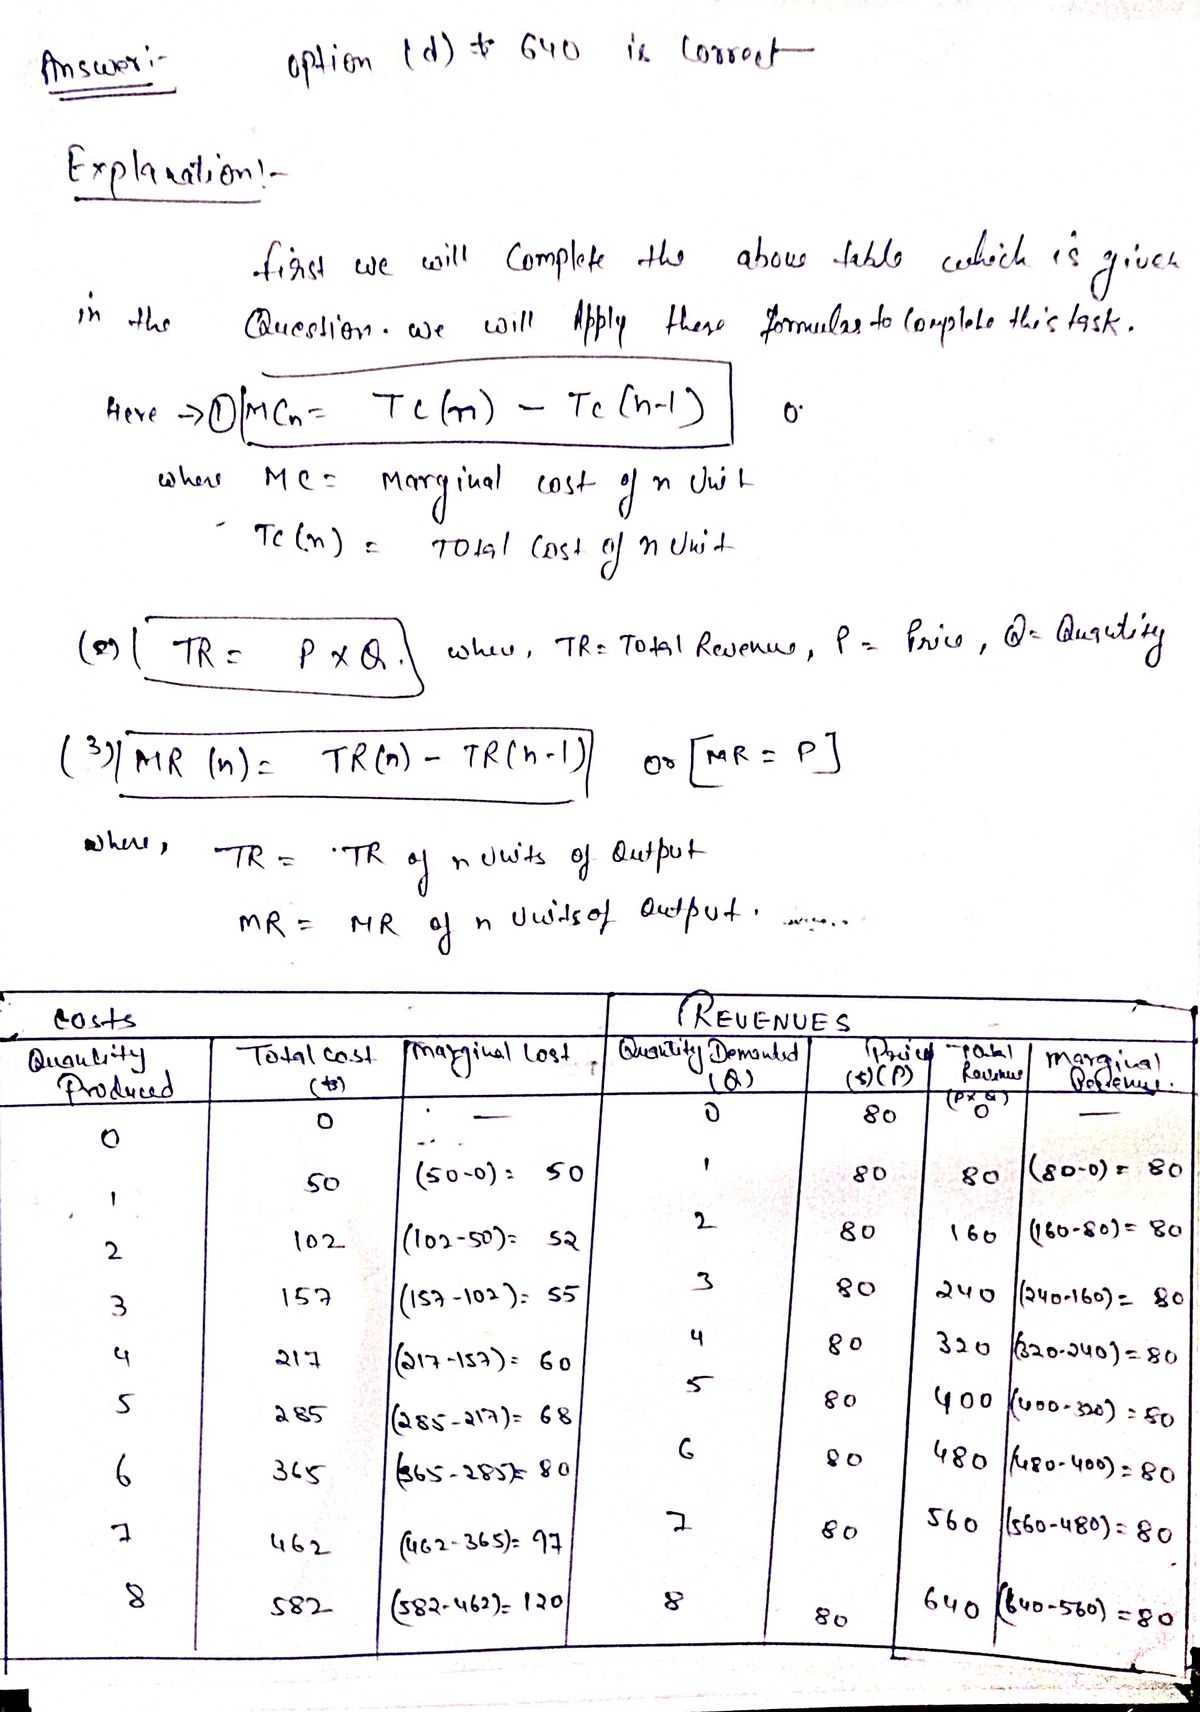 Answer:- option (d) $ 640 is correct
Explanation:-
first we will Complete the above table which is given
in the Question. we will Apply these formulas to complete this task.
Here → ① MCn = TC(n) - Tc(n-1)
where MC = Marginal cost of n Unit
Tc(n) = TOtal Cost of n Unit
(2) TR = P x Q. where, TR = TOtal Revenue, P = Price, Q = Quantity
(3) MR (n) = TR(n) - TR(n-1) or [MR = P]
where, TR = TR of n Units of Output
MR = MR of n Units of Output.
Costs REVENUES
Quantity Produced Total cost ($) Marginal Cost Quantity Demanded (Q) Price ($) (P) Total Revenue (PxQ) Marginal Revenue.
0 0 — 0 80 0 —
1 50 (50-0) = 50 1 80 80 (80-0) = 80
2 102 (102-50) = 52 2 80 160 (160-80) = 80
3 157 (157-102) = 55 3 80 240 (240-160) = 80
4 217 (217-157) = 60 4 80 320 (320-240) = 80
5 285 (285-217) = 68 5 80 400 (400-320) = 80
6 365 (365-285) = 80 6 80 480 (480-400) = 80
7 462 (462-365) = 97 7 80 560 (560-480) = 80
8 582 (582-462) = 120 8 80 640 (640-560) = 80